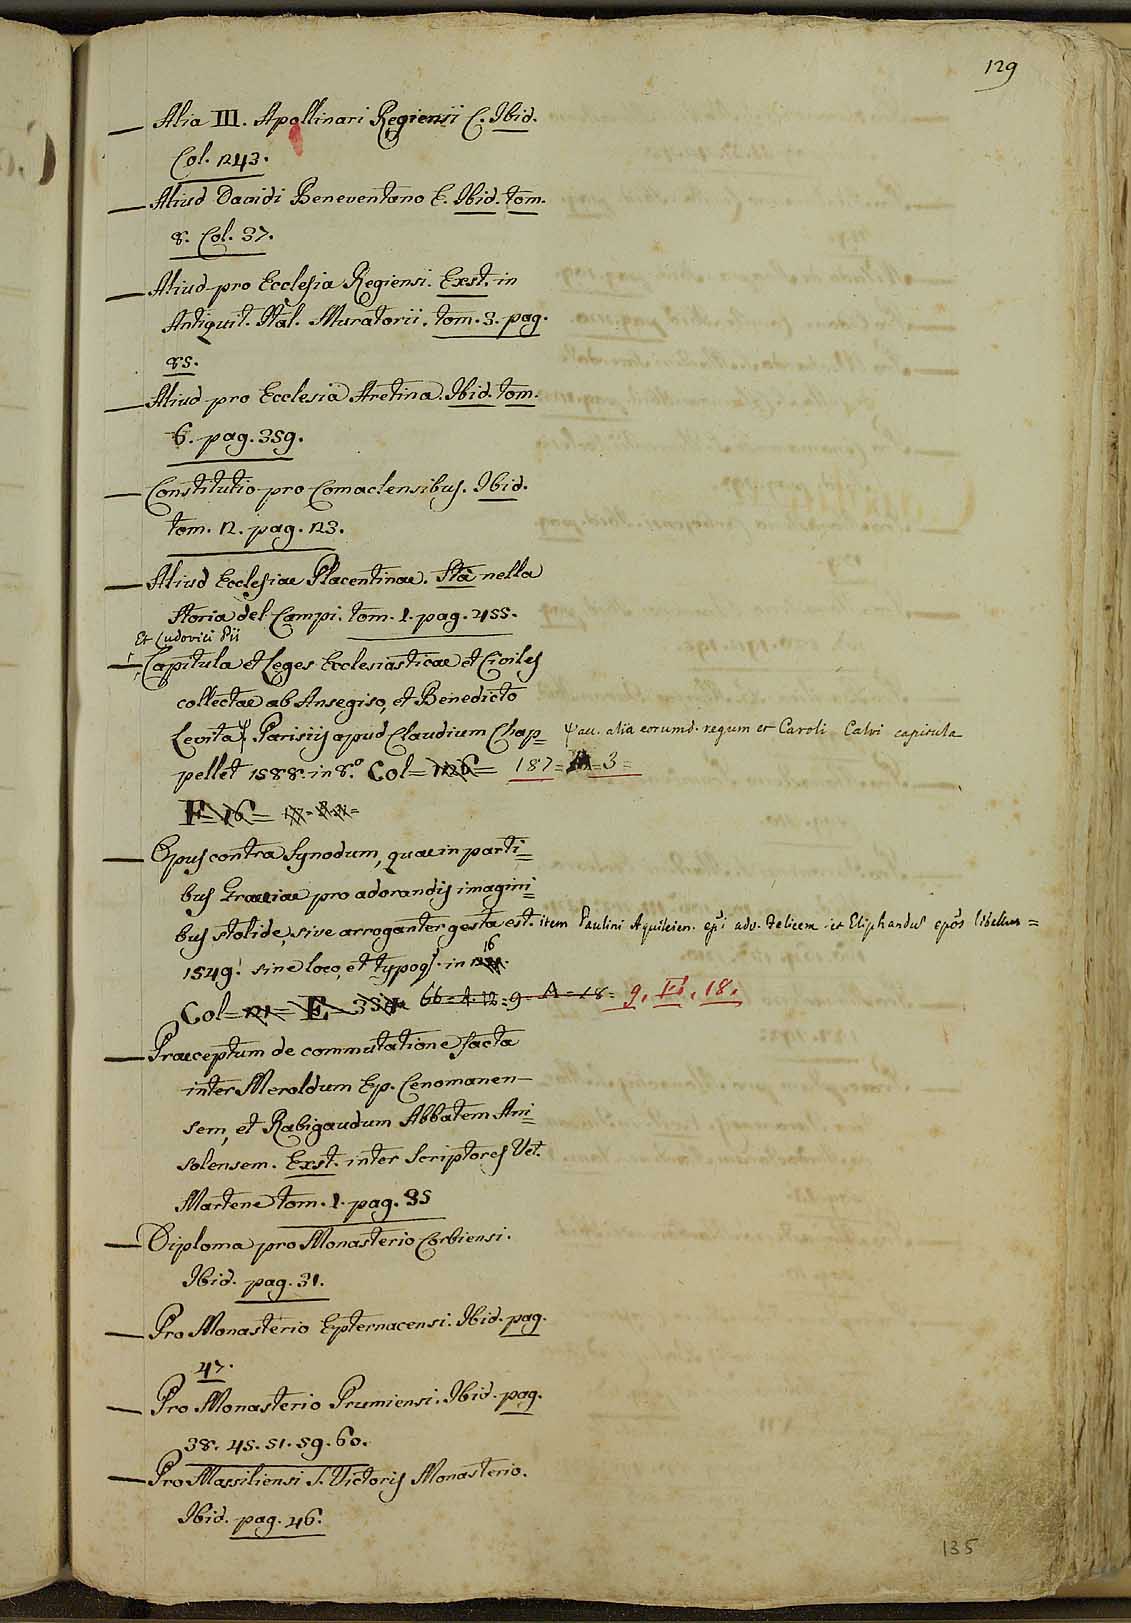 129
— Alia III. Apollinari Regiensi E. Ibid.
Col. 1243.
— Aliud Davidi Beneventano E. Ibid. tom.
8. Col. 37.
— Aliud pro Ecclesia Regiensi. Exst. in
Antiquit. Ital. Muratorii. tom. 3. pag.
85.
— Aliud pro Ecclesia Aretina. Ibid. tom.
6. pag. 359.
— Constitutio pro Comaclensibus. Ibid.
tom. 12. pag. 123.
— Aliud Ecclesiae Placentinae. Stà nella
Storia del Campi. tom. 1. pag. 455.
Et Ludovici Pii
— Capitula et Leges Ecclesiasticae et Civiles
collectae ab Ansegiso, et Benedicto
Levita. Parisiis apud Claudium Chap= au. alia eorumd. regum et Caroli Calvi capitula
pellet 1588. in 8.° Col= 187= 3=
— Opus contra Synodum, quae in parti=
bus Graeciae pro adorandis imagini=
bus stolide, sive arroganter gesta est. item Paulini Aquileien. epi adv. Felicem et Eliphandu epos libellus=
1549. sine loco, et typogr. in 16
Col= 66= A. 12= 9= A= 18= 9. 18.
— Praeceptum de commutatione facta
inter Meroldum Ep. Cenomanen–
sem, et Rabigaudum Abbatem Ani=
solensem. Exst. inter Scriptores Vet.
Martene tom. 1. pag. 35
— Diploma pro Monasterio Corbiensi.
Ibid. pag. 31.
— Pro Monasterio Epternacensi. Ibid. pag.
47.
— Pro Monasterio Prumiensi. Ibid. pag.
38. 45. 51. 59. 60.
— Pro Massiliensi S. Victoris Monasterio.
Ibid. pag. 46.
135